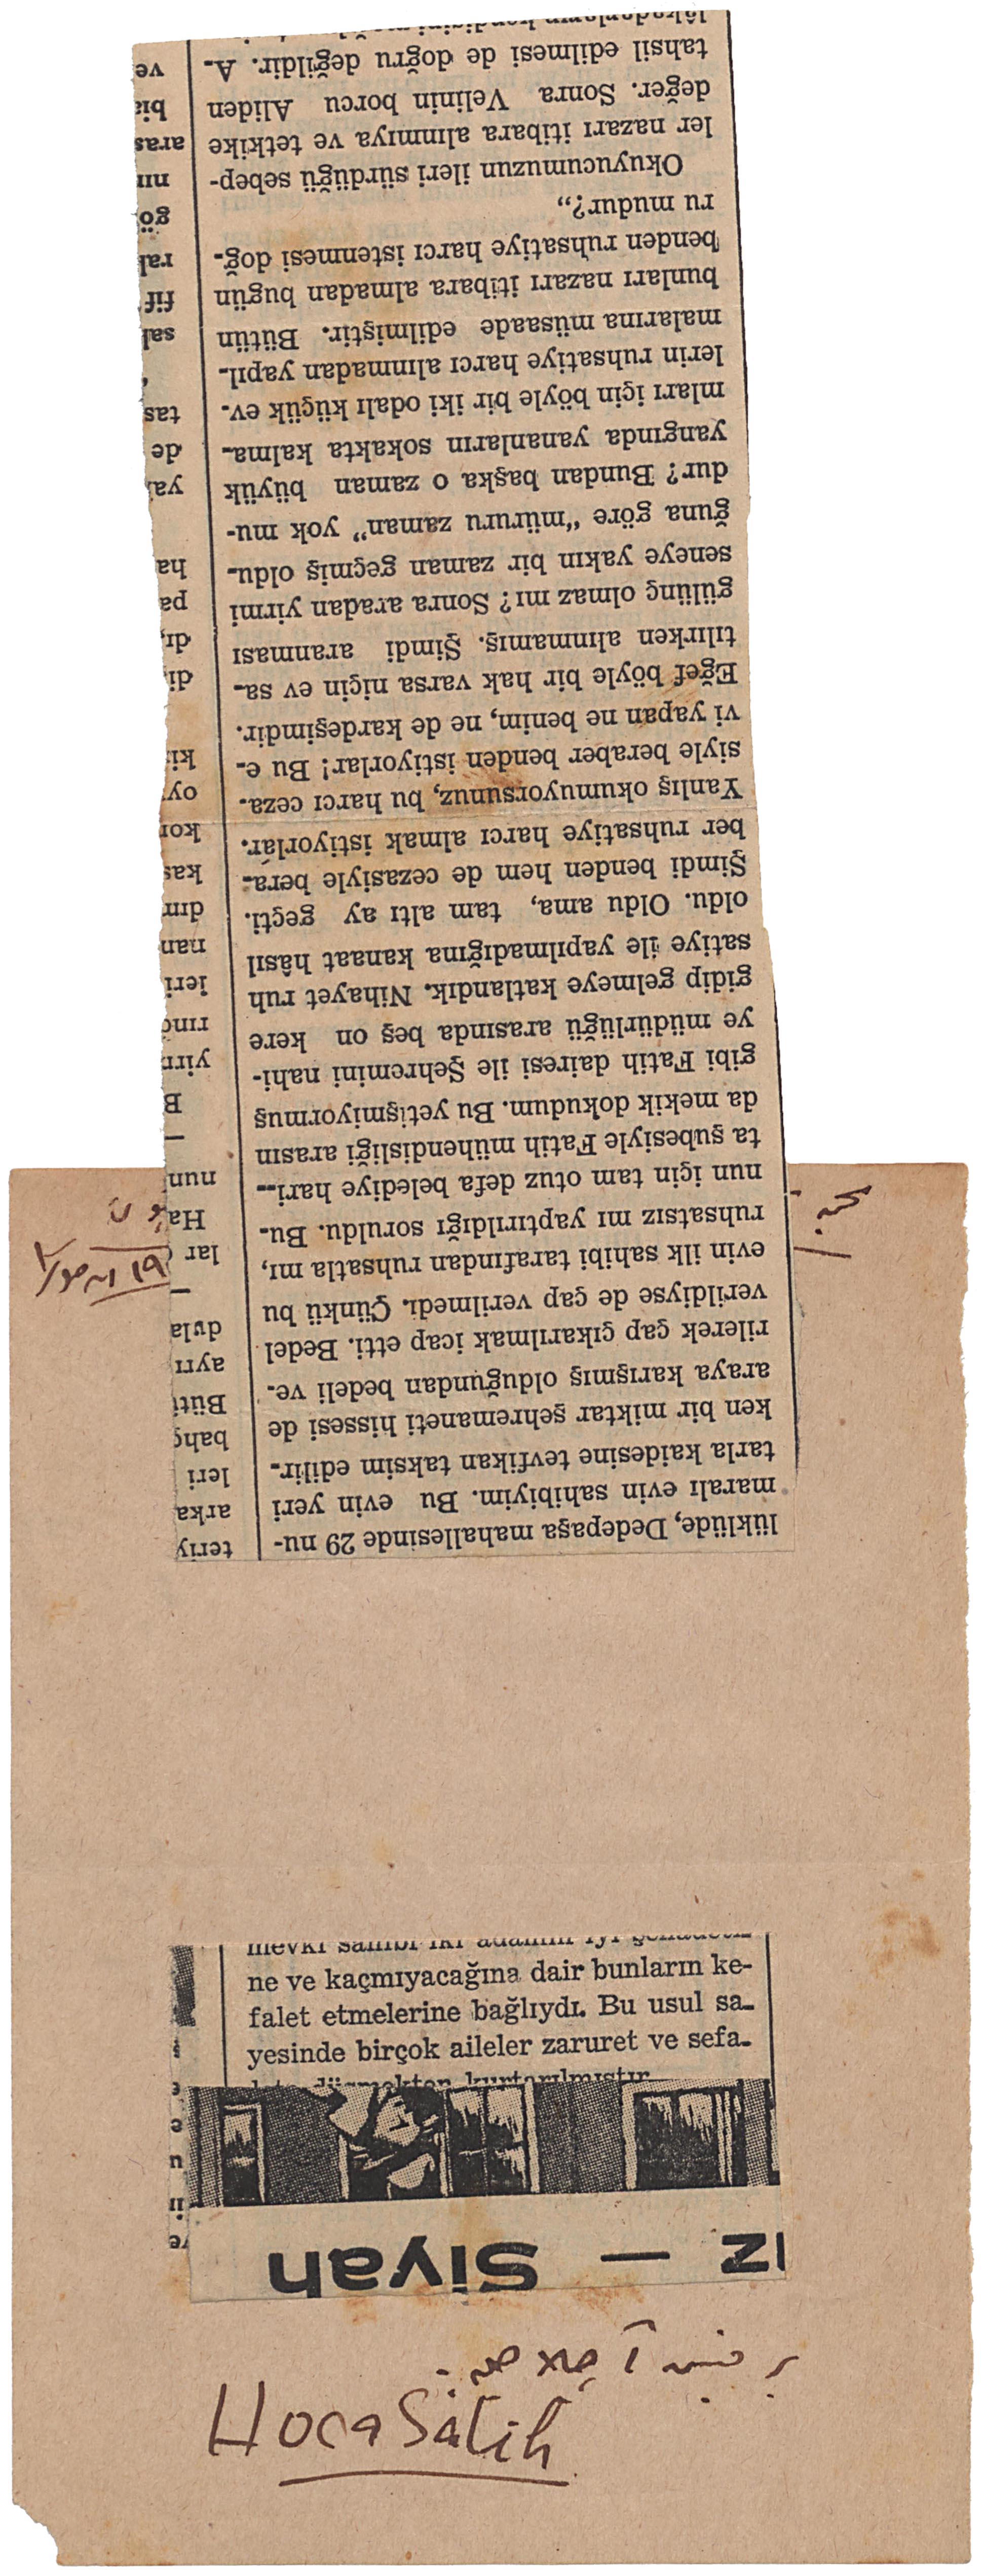 lüklüde, Dedepaşa mahallesinde 29 nu-
maralı evin sahibiyim. Bu evin yeri
tarla kaidesine tevfikan taksim edilir-
ken bir miktar şehremaneti hissesi de
araya karışmış olduğundan bedeli ve-
rilerek çap çıkarılmak icap etti. Bedel
verildiyse de çap verilmedi. Çünkü bu
evin ilk sahibi tarafından ruhsatla mı,
ruhsatsız mı yaptırıldığı soruldu. Bu-
nun için tam otuz defa belediye hari-
ta şubesiyle Fatih mühendisliği arasın
da mekik dokudum. Bu yetişmiyormuş
gibi Fatih dairesi ile Şehremini nahi-
ye müdürlüğü arasında beş on kere
gidip gelmeye katlandık. Nihayet ruh
satiye ile yapılmadığına kanaat hâsıl
oldu. Oldu ama, tam altı ay geçti.
Şimdi benden hem de cezasiyle bera-
ber ruhsatiye harcı almak istiyorlar.
Yanlış okumuyorsunuz, bu harcı ceza-
siyle beraber benden istiyorlar! Bu e-
vi yapan ne benim, ne de kardeşimdir.
Eğef böyle bir hak varsa niçin ev sa-
tılırken alınmamış. Şimdi aranması
gülünç olmaz mı? Sonra aradan yirmi
seneye yakın bir zaman geçmiş oldu-
ğuna göre "müruru zaman" yok mu-
dur? Bundan başka o zaman büyük
yangında yananların sokakta kalma-
mları için böyle bir iki odalı küçük ev-
lerin ruhsatiye harcı alınmadan yapıl-
malarına müsaade edilmiştir. Bütün
bunları nazarı itibara almadan bugün
benden ruhsatiye harcı istenmesi doğ-
ru mudur?,,
Okuyucumuzun ileri sürdüğü sebep-
ler nazarı itibara alınmıya ve tetkike
değer. Sonra Velinin borcu Aliden
tahsil edilmesi de doğru değildir. A-
teriy
arka
leri
bahç
Büti
ayrı
dvla
—
lar
Ha
nun
—
B
leri
nan
dın
kas
kor
oy
pa
ha
ya
de
tas
sal
fif
aras
ve
ne ve kaçmıyacağına dair bunların ke-
falet etmelerine bağlıydı. Bu usul sa-
yesinde birçok aileler zaruret ve sefa-
ız — Siyah
Hoca Salih